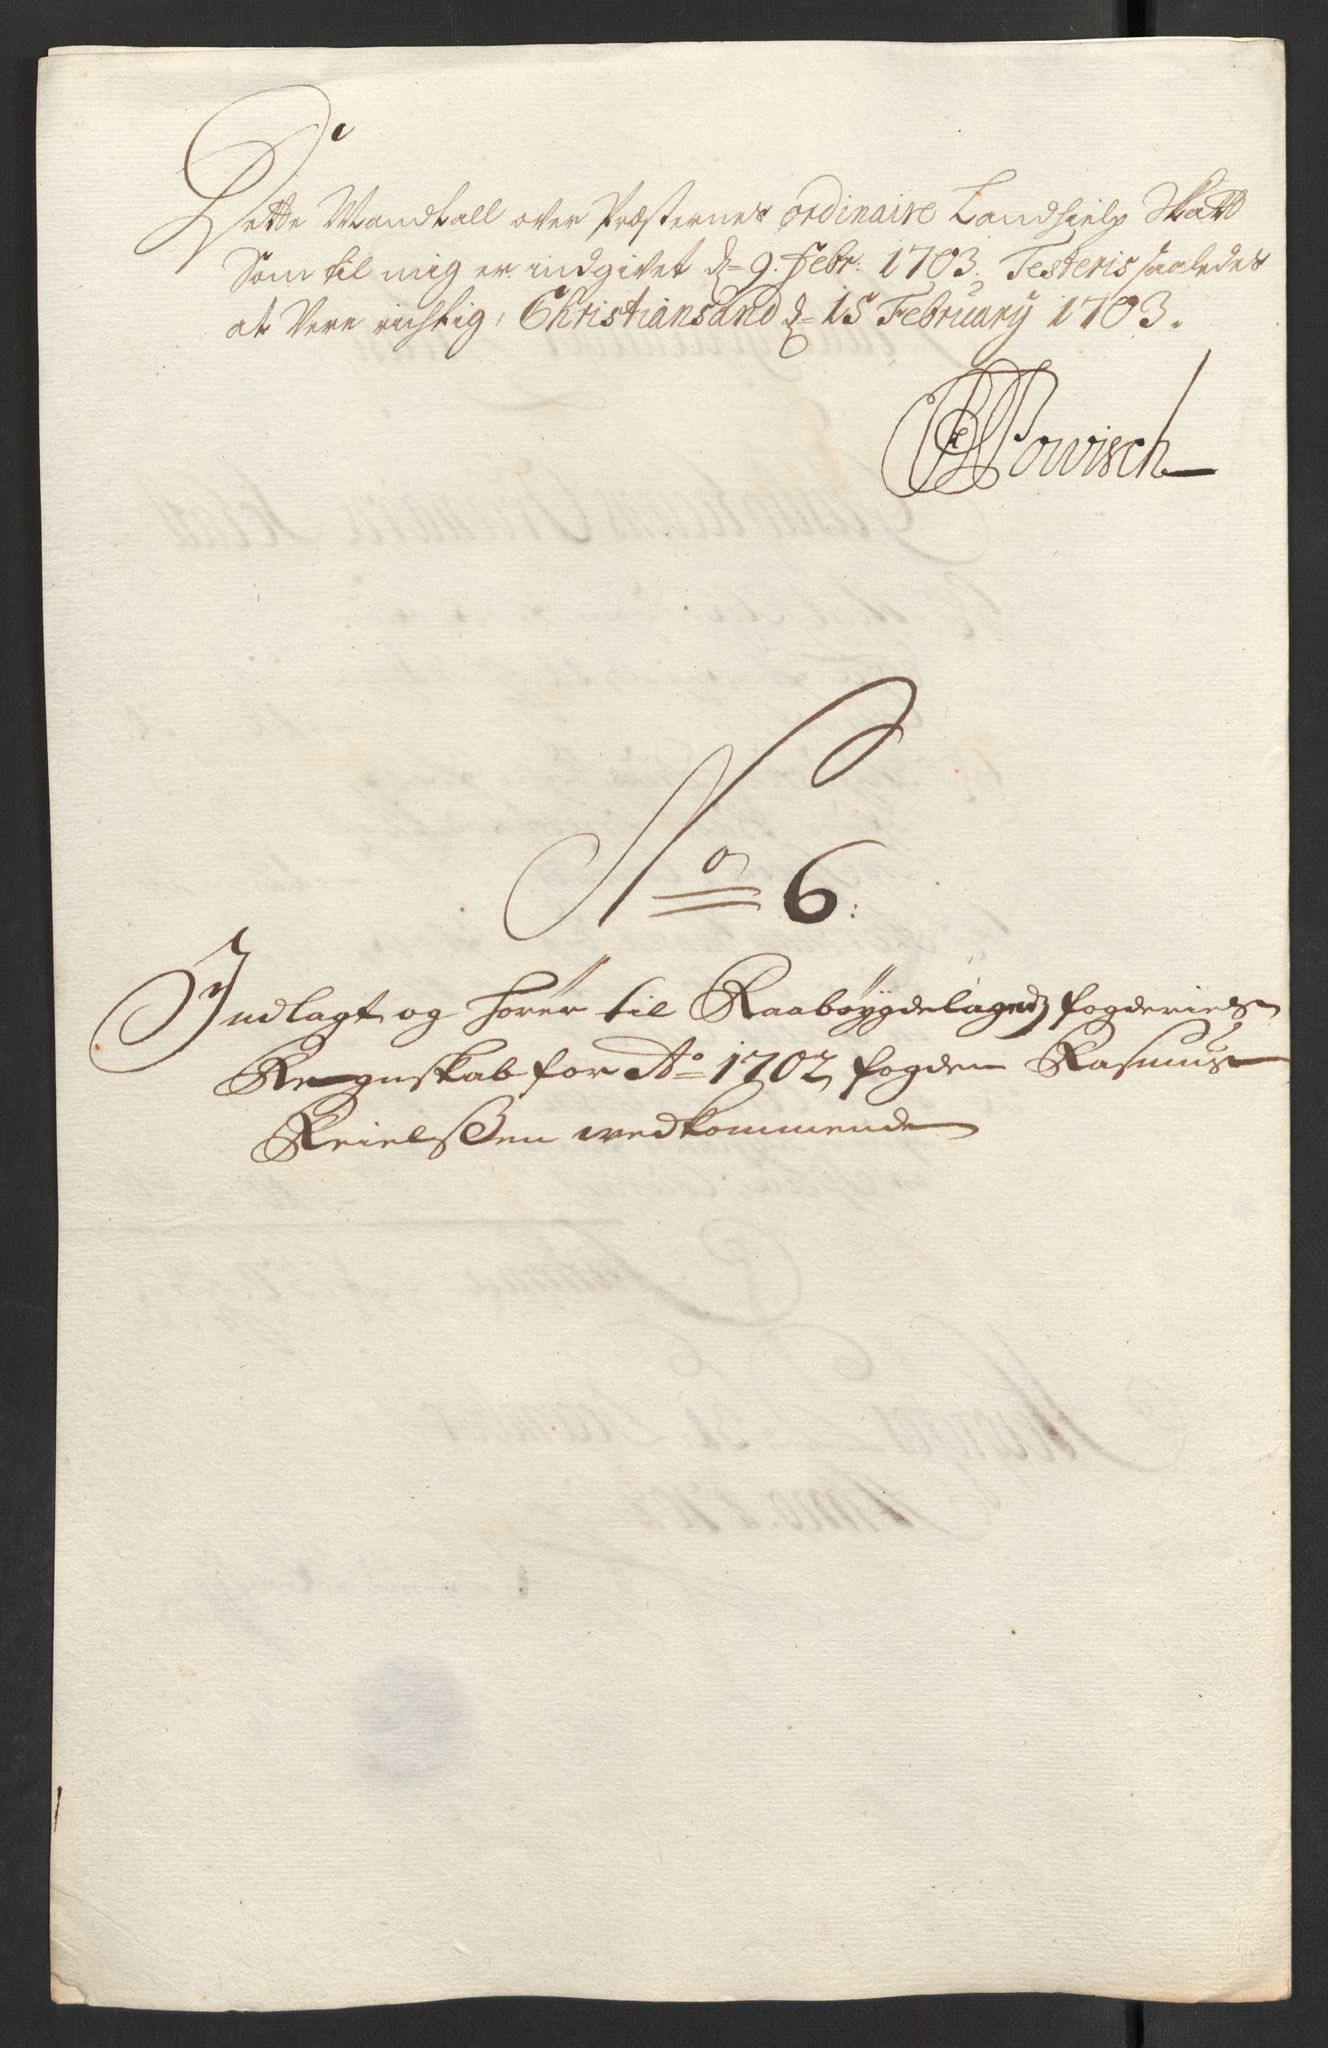 Dette Mandtall over Præsternes ordinaire Landhielp Skatt
Som til mig er indgivet d= 9. Febr: 1703. Testeris saaledes
at Vere richtig, Christiansand d= 15 February 1703.
Powisch
No 6:
Indlagt og hører til Raabøygdelagends fogderies
Regnskab for Ao 1702 fogden Rasmus
Keielssen wedkommende